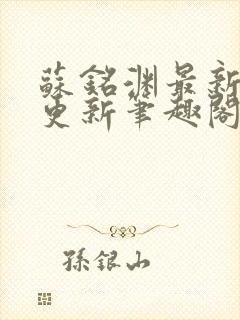 蘇銘淵最新
更新筆趣閣
孫銀山